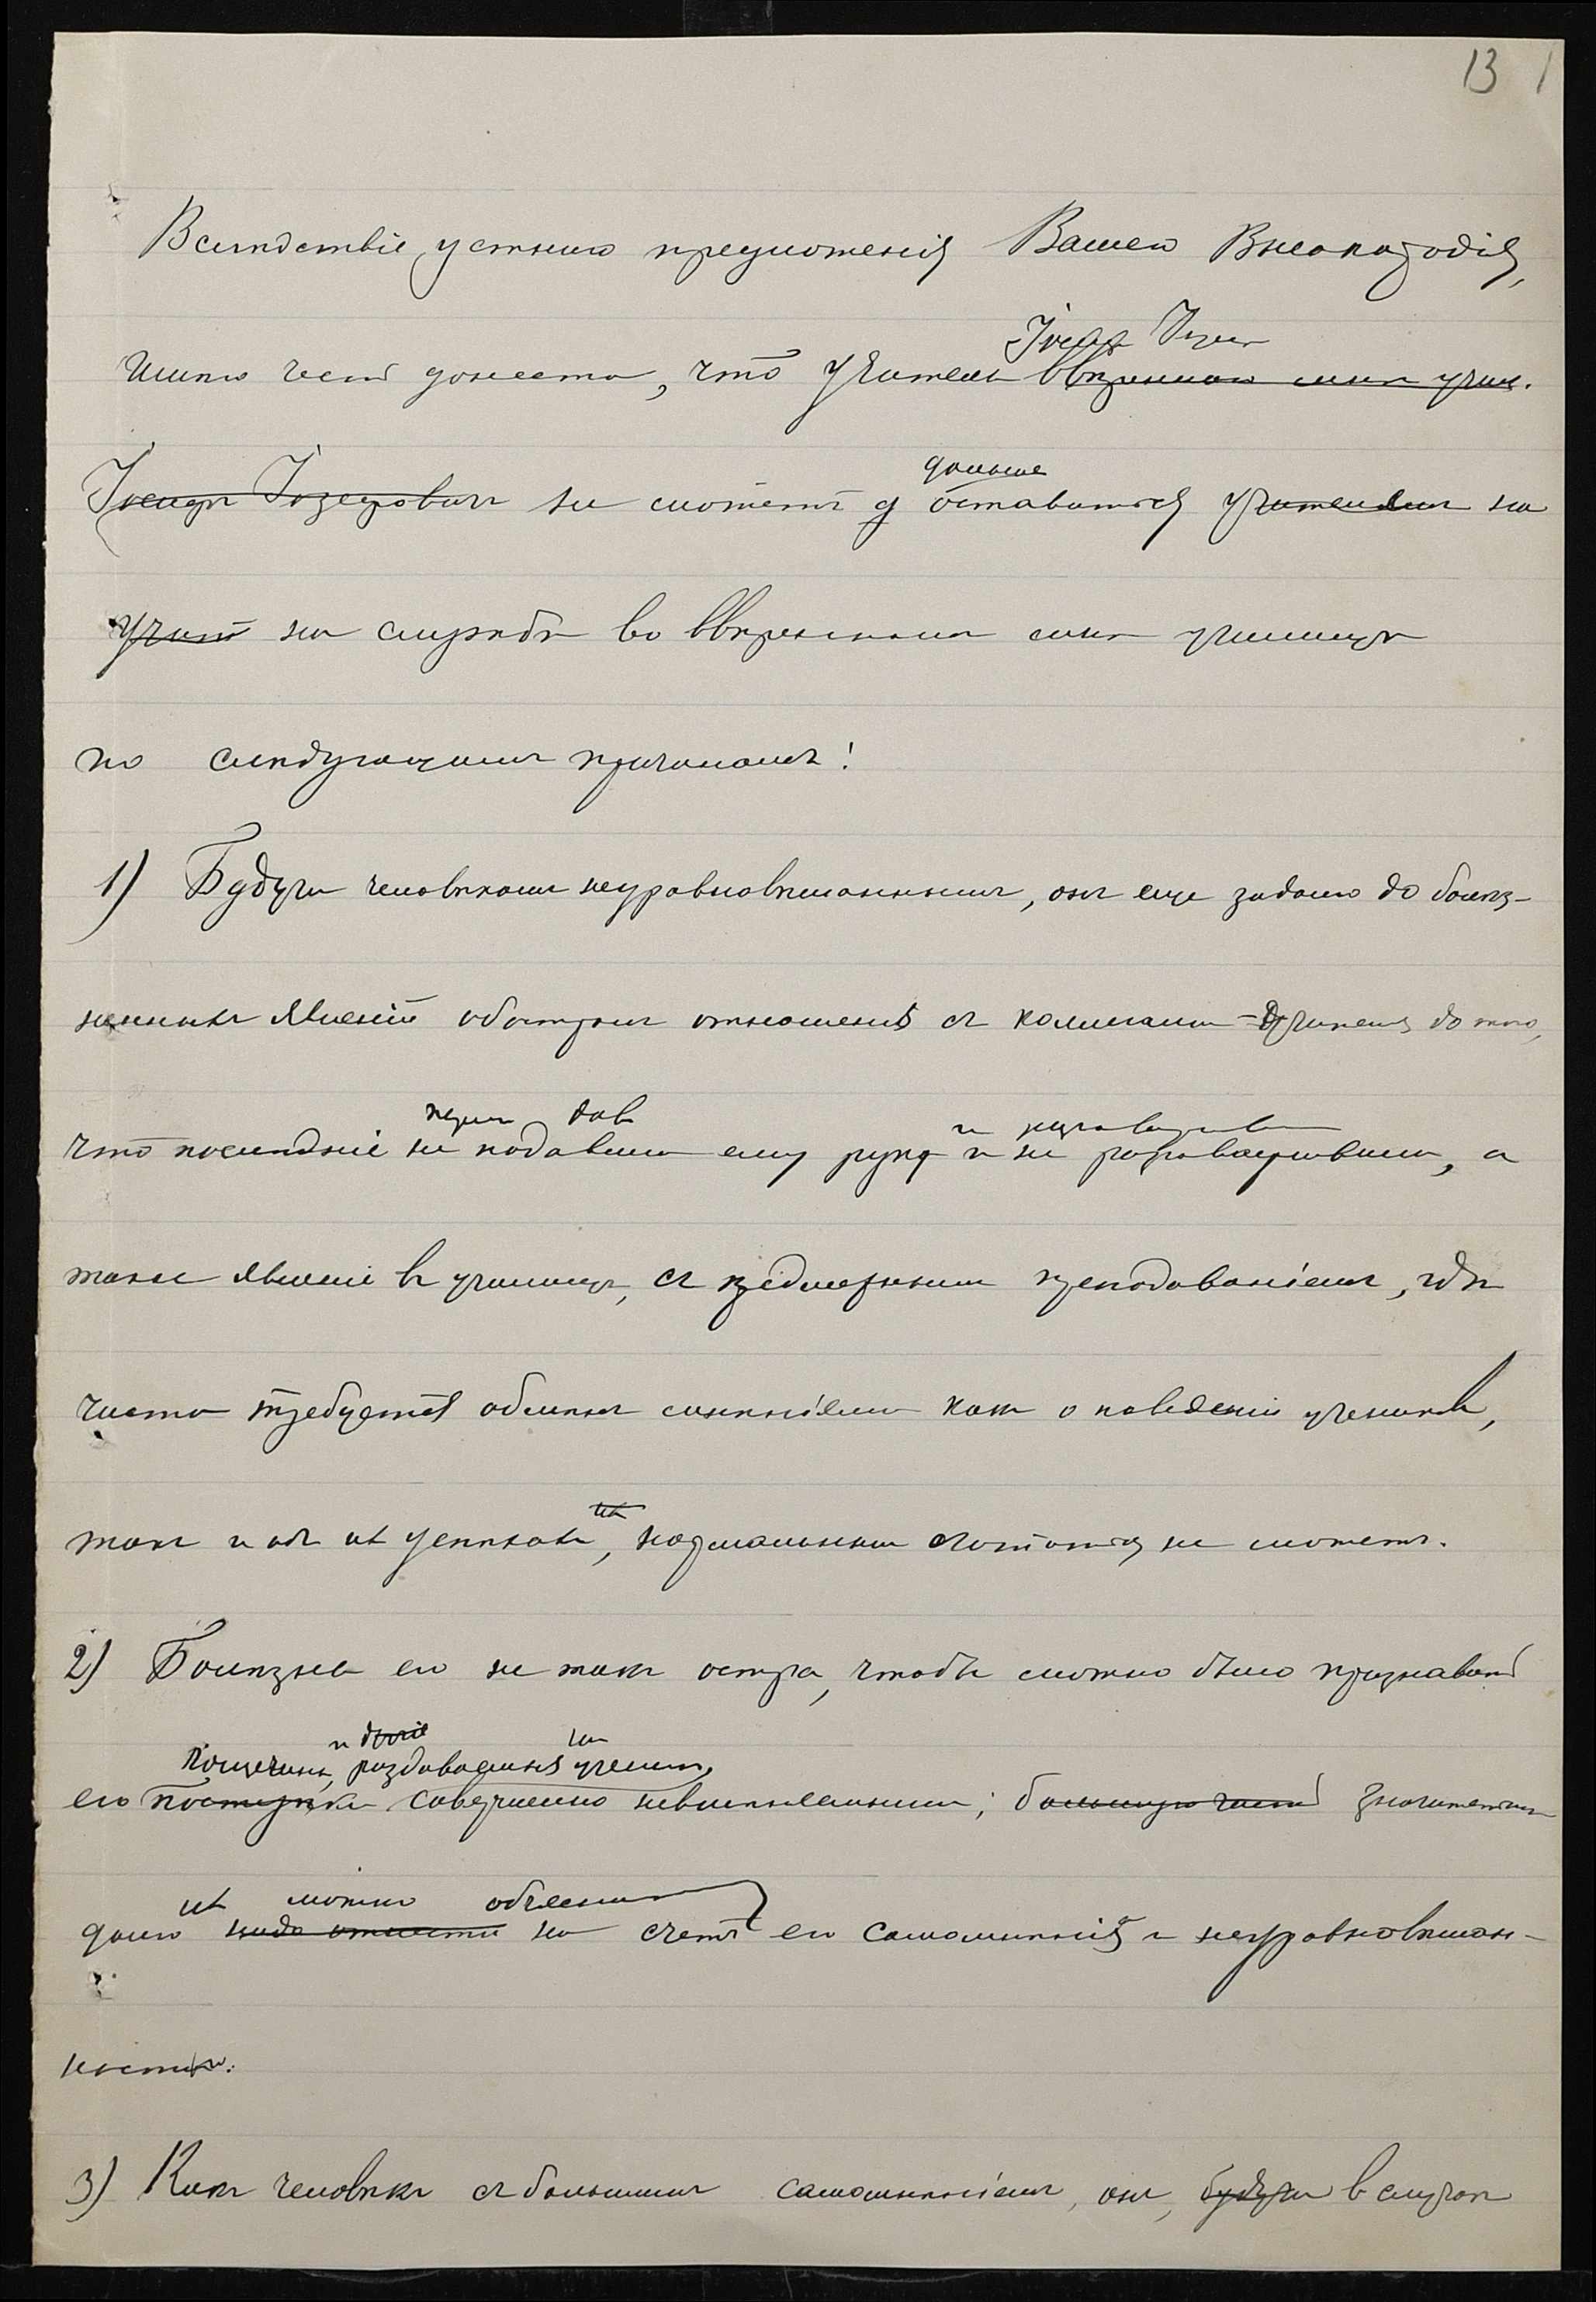 13
Вслѣдствіе устнаго предложенія Вашего Высокородія,
Іосифъ
имѣю честь донести, что учитель ввѣреннаго мнѣ учил.
Іосифъ Іозефовичъ не можетъ д оставаться учителемъ на
дольше
учит на службѣ во ввѣренномъ мнѣ училищѣ
по слѣдующимъ причинамъ:
1) Будучи человѣкомъ неуравновѣшаннымъ, онъ еще задолго до болѣз-
ненныхъ явленій обострилъ отношенія съ коллегами до того,
что послѣдніе не подавали ему руки и не разговаривали, а
такое явленіе въ училищѣ, съ предметнымъ преподаваніемъ, гдѣ
часто требуется обмѣнъ мнѣніями какъ о поведеніи учениковъ,
такъ и объ ихъ успѣхахъ, нормальнымъ считаться не можетъ.
2) Болѣзнь его не такъ остра, чтобы можно было признавать
пощечины, раздаваемыя ученик.
его поступки совершенно невмѣняемыми; большую часть значительн
ихъ можно объяснить
долю надо отнести на счетъ его самомнѣнія и неуравновѣшан-
ности.
3) Какъ человѣкъ съ большимъ самомнѣніемъ, онъ, будучи въ случаѣ